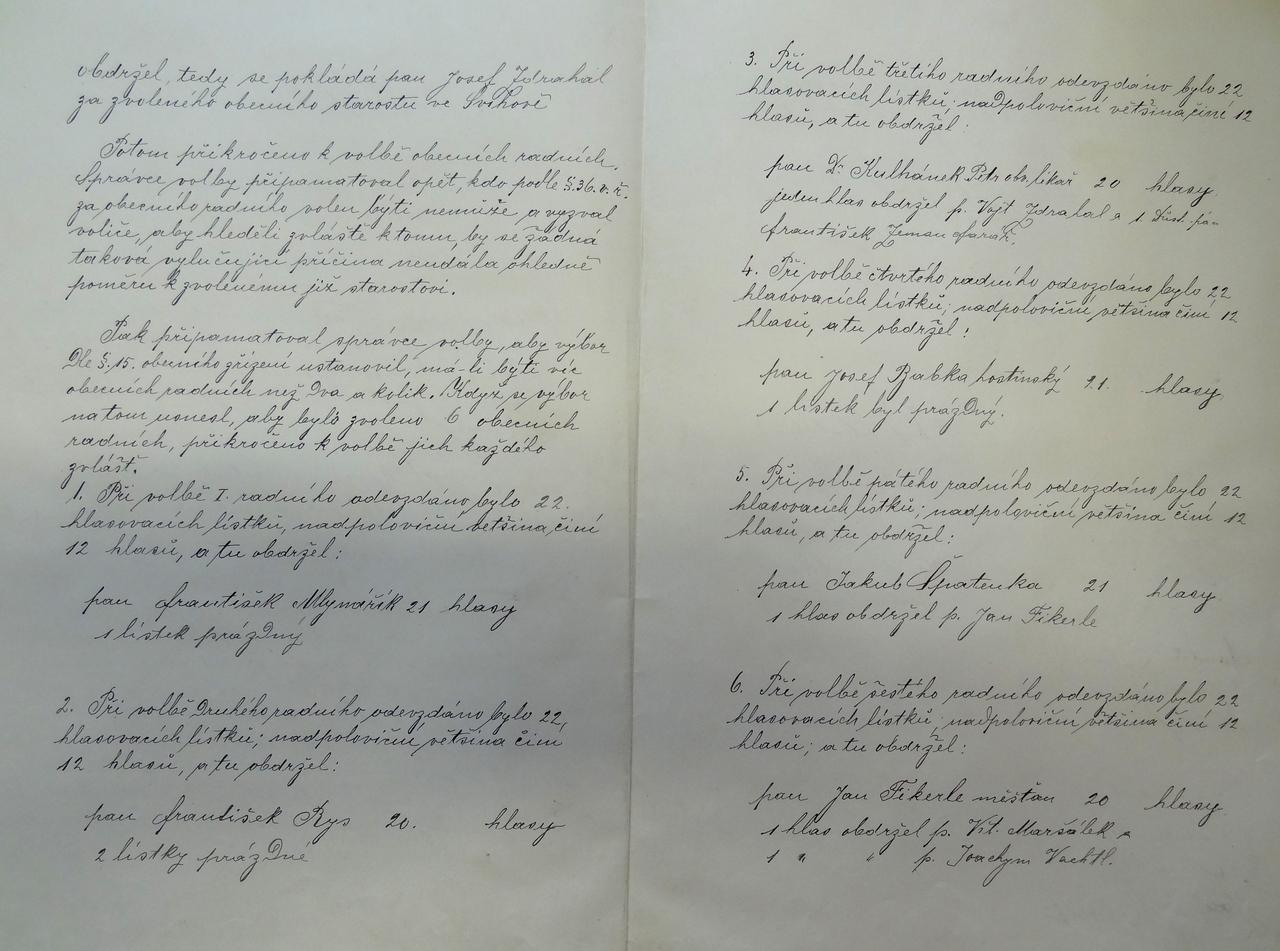 obdržel, tedy se pokládá pan Josef Zdrahal
za zvoleného obecního starostu ve Švihově
Potom přikročeno k volbě obecních radních.
Správce volby připamatoval opět, kdo podle §. 36. v. ř.
za obecního radního volen býti nemůže a vyzval
voliče, aby hleděli zvláště k tomu, by se žádná
taková vylučující příčina neudála ohledně
poměru k zvolenému již starostovi.
Pak připamatoval správce volby, aby výbor
Dle §. 15. obecního zřízení ustanovil, má-li býti víc
obecních radních než dva a kolik. Když se výbor
na tom usnesl, aby bylo zvoleno 6 obecních
radních, přikročeno k volbě jich každého
zvlášť.
1. Při volbě I. radního odevzdáno bylo 22.
hlasovacích lístků, nadpoloviční většina činí
12 hlasů, a tu obdržel:
pan František Mlynařík 21 hlasy
1 lístek prázdný
2. Při volbě Druhého radního odevzdáno bylo 22,
hlasovacích lístků; nadpoloviční většina činí
12 hlasů, a tu obdržel:
pan František Rys 20. hlasy
2 lístky prázdné
3. Při volbě třetího radního odevzdáno bylo 22
hlasovacích lístků; nadpoloviční většina činí 12
hlasů, a tu obdržel:
pan Dr Kulhánek Petr obv. likař 20 hlasy
jeden hlas obdržel p. Vojt Zdrahal a 1 Důst. pá-
František Zeman farář.
4. Při volbě čtvrtého radního odevzdáno bylo 22
hlasovacích lístků; nadpoloviční většina činí 12
hlasů, a tu obdržel:
pan Josef Babka hostinský 21. hlasy
1 lístek byl prázdný.
5. Při volbě pátého radního odevzdáno bylo 22
hlasovacích lístků; nadpoloviční většina činí 12
hlasů, a tu obdržel:
pan Jakub Špatenka 21 hlasy
1 hlas obdržel p. Jan Fikerle
6. Při volbě šestého radního odevzdáno bylo 22
hlasovacích lístků; nadpoloviční většina činí 12
hlasů; a tu obdržel:
pan Jan Fikerle měšťan 20 hlasy
1 hlas obdržel p. Vit. Maršálek a
1 " " p. Joachym Vachtl.